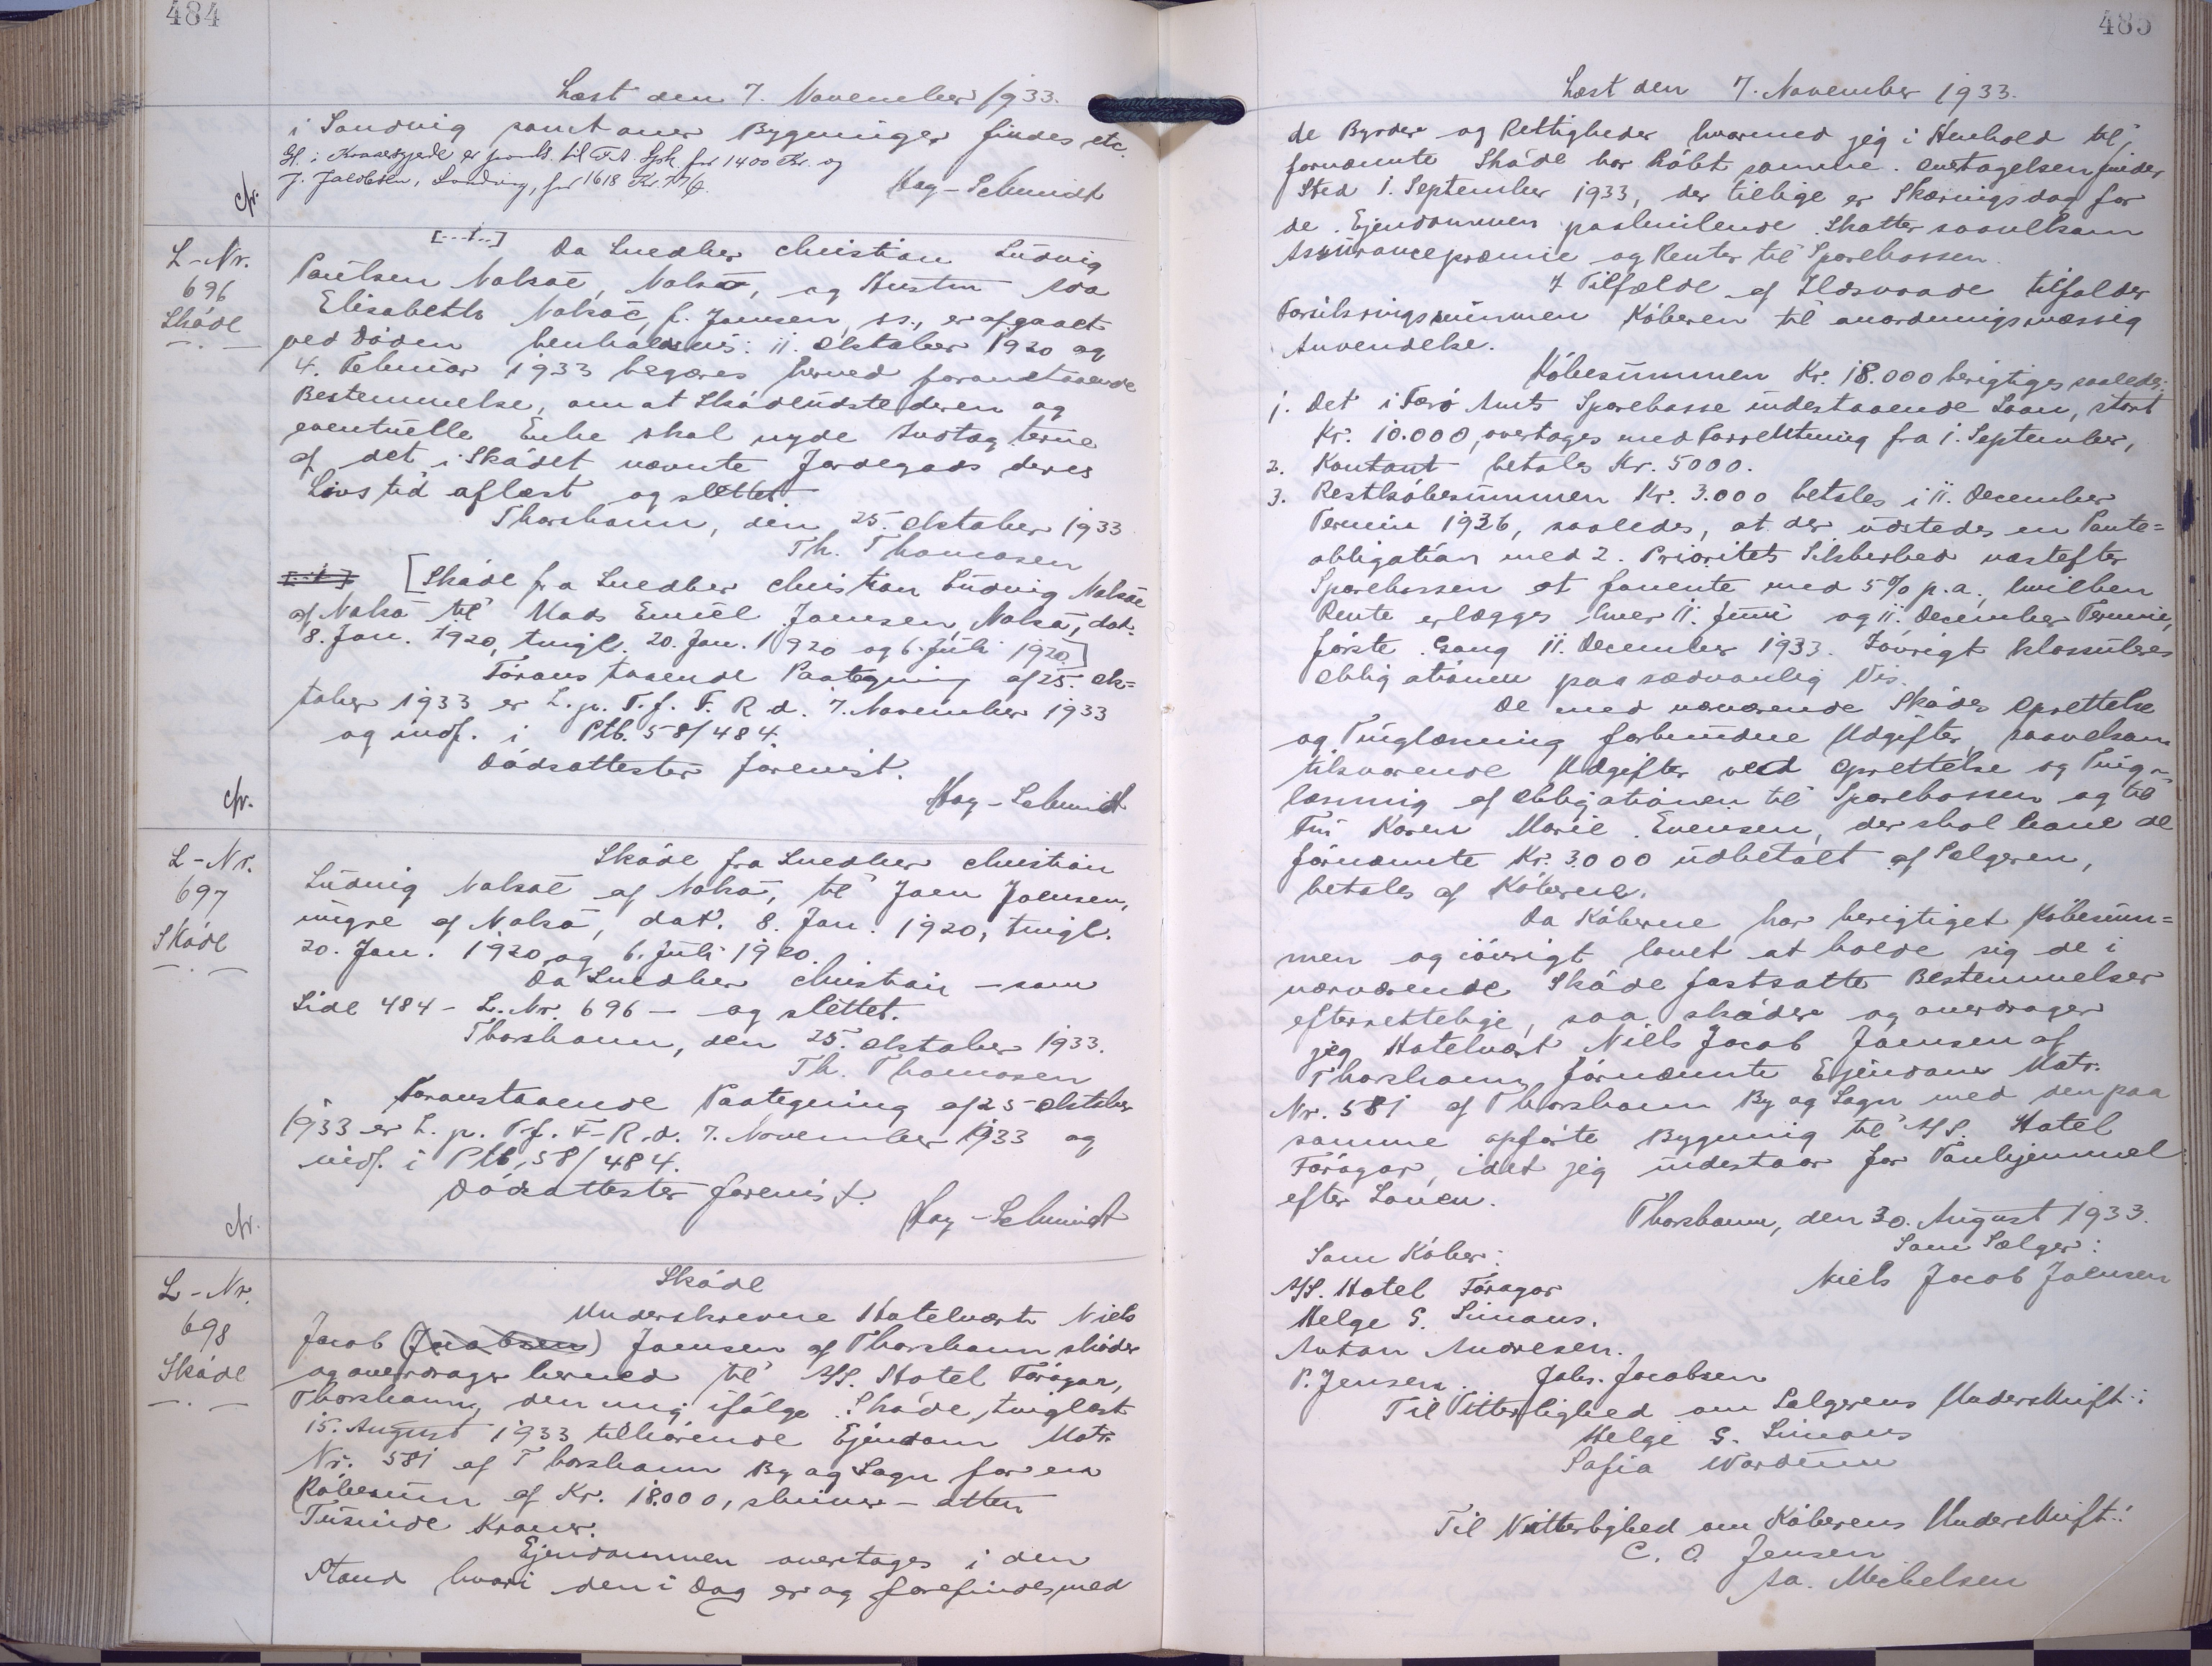 484
Læst den 7. November 1933.
i Sandvig samt over Bygninger findes etc.
Hf. i Kraasgjerde er pants. til F.A. Spk for 1400 Kr. og
J. Jacobsen, Sandvig, for 1618 Kr. 77 Ø.
Hay-Schmidt
cfr.
L-Nr.
696
Skøde
[...1...] Da Snedker Christian Ludvig
Poulsen Nalsøe, Nalsø, og Hustru Ida
Elisabeth Nalsøe, f. Joensen, ss., er afgaaet
ved Døden henholdsvis: 11. Oktober 1920 og
4. Februar 1933 begæres herved foranstaaende
Bestemmelse, om at Skødeudstederen og
eventuelle Enke skal nyde Indtægterne
af det i Skødet nævnte Jordegods deres
Livstid aflæst og slettet
Thorshavn, den 25. Oktober 1933
Th. Thomasen
[...1...] [Skøde fra Snedker Christian Ludvig Nalsøe
af Nalsø til Mads Emiel Joensen, Nalsø, dat.
8. Jan. 1920, tingl. 20. Jan. 1920 og 6. Juli 1920.]
Foranstaaende Paategning af 25. Ok=
tober 1933 er L. p. T. f. F. R d. 7. November 1933
og indf. i Ptb. 58/484.
Dødsattester forevist.
Hay-Schmidt
cfr.
L-Nr.
697
Skøde
Skøde fra Snedker Christian
Ludvig Nalsøe af Nalsø, til Joen Joensen,
yngre af Nalsø, dat. 8. Jan. 1920, tingl.
20. Jan. 1920 og 6. Juli 1920.
Da Snedker Christian - som
Side 484 - L. Nr. 696 - og slettet.
Thorshavn, den 25. Oktober 1933.
Th. Thomasen
Foranstaaende Paategning af 25 Oktober
1933 er L. p. T. f. F- R. d. 7. November 1933 og
indf. i Ptb. 58/484.
Dødsattester forevist.
Hay-Schmidt
cfr.
L-Nr.
698
Skøde
Skøde
Underskrevne Hotelvært Niels
Jacob (Jacobsen) Joensen af Thorshavn skøder
og overdrager herved til A/S. Hotel Føroyar,
Thorshavn, den mig ifølge Skøde, tinglæst
15. August 1933 tilhørende Ejendom Matr.
Nr. 581 af Thorshavn By og Sogn for en
Købesum af Kr. 18.000, skriver - atten
Tusinde Kroner.
Ejendommen overtages i den
Stand hvori den i Dag er og forefindes, med
485
Læst den 7. November 1933.
de Byrder og Rettigheder hvormed jeg i Henhold til
fornævnte Skøde har købt samme. Overtagelsen finder
Sted 1. September 1933, der tillige er Skæringsdag for
de Ejendommen paahvilende Skatter saavelsom
Assurancepræmie og Renter til Sparekassen.
I Tilfælde af Ildsvaade tilfalder
Forsikringssummen Køberen til anordningsmæssig
Anvendelse.
Købesummen Kr. 18.000 berigtiges saaledes:
1. Det i Færø Amts Sparekasse indestaaende Laan, stort
Kr. 10.000, overtages med Forrentning fra 1. September,
2. Kontant betales Kr. 5000.
3. Restkøbesummen Kr. 3.000 betales i 11. December
Termin 1936, saaledes, at der udstedes en Pante=
obligation med 2. Prioritets Sikkerhed næstefter
Sparekassen at forrente med 5% p.a., hvilken
Rente erlægges hver 11. Juni og 11. December Termin,
første Gang 11. December 1933. Iøvrigt klausuleres
Obligationen paa sædvanlig Vis.
De med nærværende Skødes Oprettelse
og Tinglæsning forbundne Udgifter, saavelsom
tilsvarende Udgifter ved Oprettelse og Ting=
læsning af Obligationen til Sparekassen og til
Fru Karen Marie Evensen, der skal have de
fornævnte Kr. 3.000 udbetalt af Sælgeren,
betales af Køberne.
Da Køberne har berigtiget Købesum=
men og iøvrigt lovet at holde sig de i
nærværende Skøde fastsatte Bestemmelser
efterrettelige, saa skøder og overdrager
jeg Hotelvært Niels Jacob Joensen af
Thorshavn fornævnte Ejendom Matr.
Nr. 581 af Thorshavn By og Sogn med den paa
samme opførte Bygning til A/S. Hotel
Føroyar, idet jeg indestaar for Vanhjemmel
efter Loven.
Thorshavn, den 30. August 1933.
Som Køber: Som Sælger:
A/S. Hotel Føroyar Niels Jacob Joensen
Helge S. Simons.
Anton Andresen.
P. Jensen. Johs. Jacobsen
Til Vitterlighed om Sælgerens Underskrift:
Helge S. Simons
Sofia Wardum
Til Vitterlighed om Køberens Underskrift:
C. O. Jensen
Sa. Michelsen